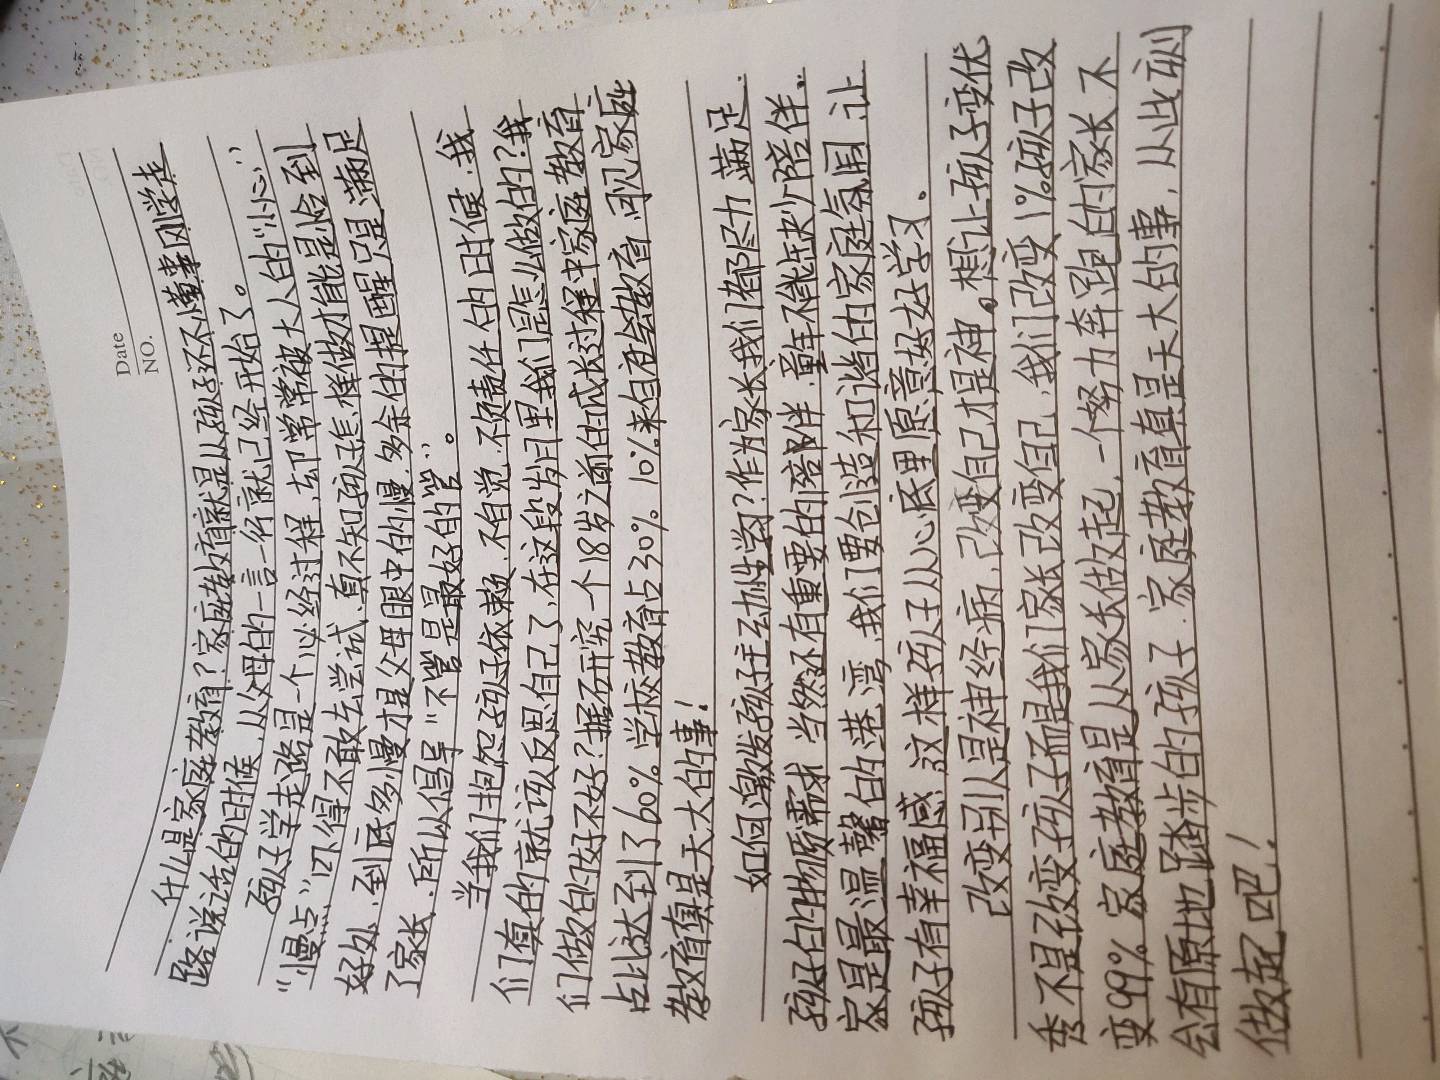 Date
NO.
什么是家庭教育？家庭教育就是从孩子还不懂事刚学走
路说话的时候，从父母的一言一行就已经开始了。
孩子学走路是一个必经过程，却常常被大人的“小心”
“慢点”吓得不敢去尝试，真不知孩子怎样做才能是恰到
好处，到底多慢才是父母眼中的慢，多余的提醒只是满足
了家长，所以倡导“不管是最好的管”。
当我们抱怨孩子依赖、不自觉、不负责任的时候，我
们真的就该反思自己了，在这段岁月里我们是怎么做的？我
们做的好不好？据研究一个18岁之前的成长过程中家庭教育
占比达到了60%，学校教育占30%，10%来自社会教育，可见家庭
教育真是天大的事！
如何激发孩子主动性学习？作为家长我们都尽力满足
孩子的物质需求，当然还有重要的陪伴，童年不能缺少陪伴。
家是最温馨的港湾，我们要创造和谐的家庭氛围，让
孩子有幸福感，这样孩子从心底里愿意好好学习。
改变别人是神经病，改变自己才是神。想让孩子变优
秀不是改变孩子而是我们家长改变自己，我们改变1%孩子改
变99%，家庭教育是从家长做起，一个努力奔跑的家长不
会有原地踏步的孩子，家庭教育真是天大的事，从此刻
做起吧！